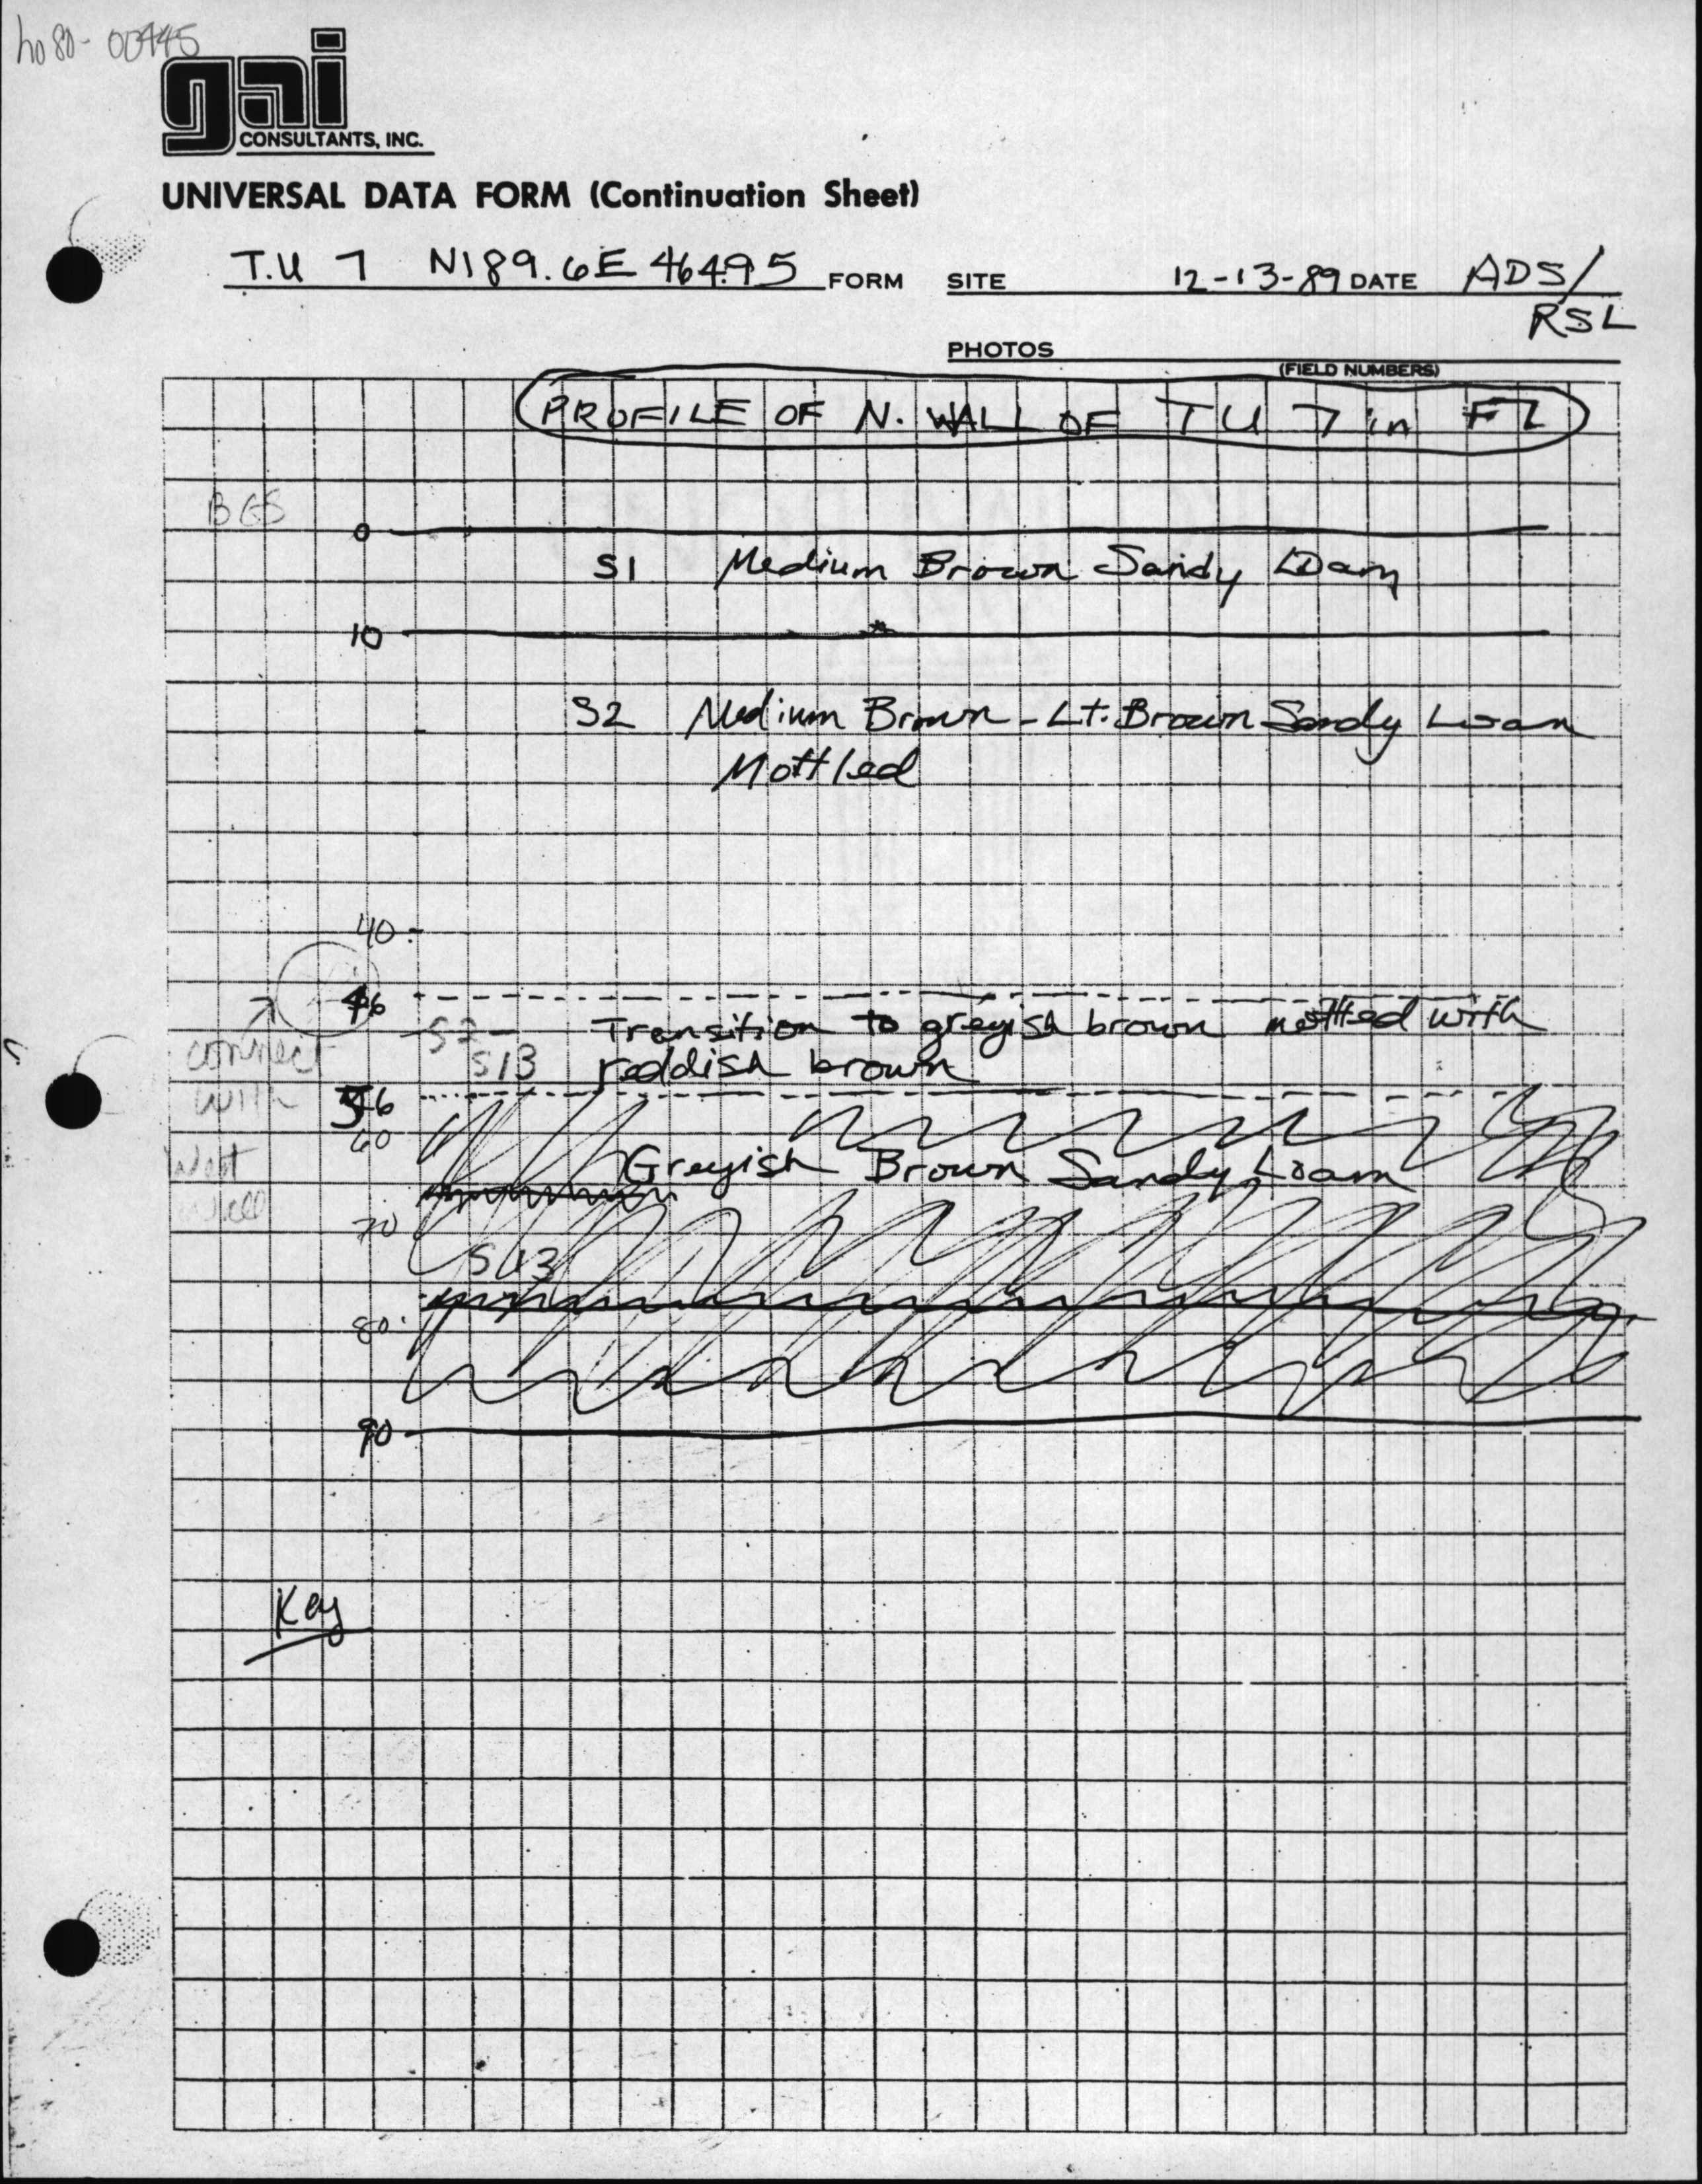 ho 80-00445
gai
CONSULTANTS, INC.
UNIVERSAL DATA FORM (Continuation Sheet)
T.U 7 N189.6E 464.95 FORM SITE 12-13-89 DATE ADS/
RSL
PHOTOS
(FIELD NUMBERS)
PROFILE OF N. WALL OF TU 7 in F7
BGS
0
S1 Medium Brown Sandy Loam
10
S2 Medium Brown - Lt. Brown Sandy Loam
Mottled
40
46
S2 Transition to greyish brown mottled with
connect S13 reddish brown
with 56
60
West Greyish Brown Sandy Loam
Wall
70
S13
80
90
Key